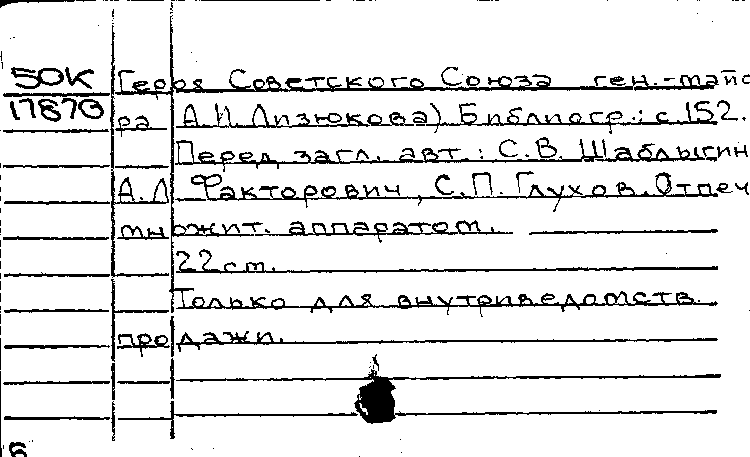 50К Героя Советского Союза ген.-майо
17870 ра А.И. Лизюкова) Библиогр.: с 152.
Перед загл. авт.: С.В. Шаблыгин
А.Л Факторович, С.П. Глухов. Отпеч
множит. аппаратом.
22 cm.
Только для внутриведомств
продажи.